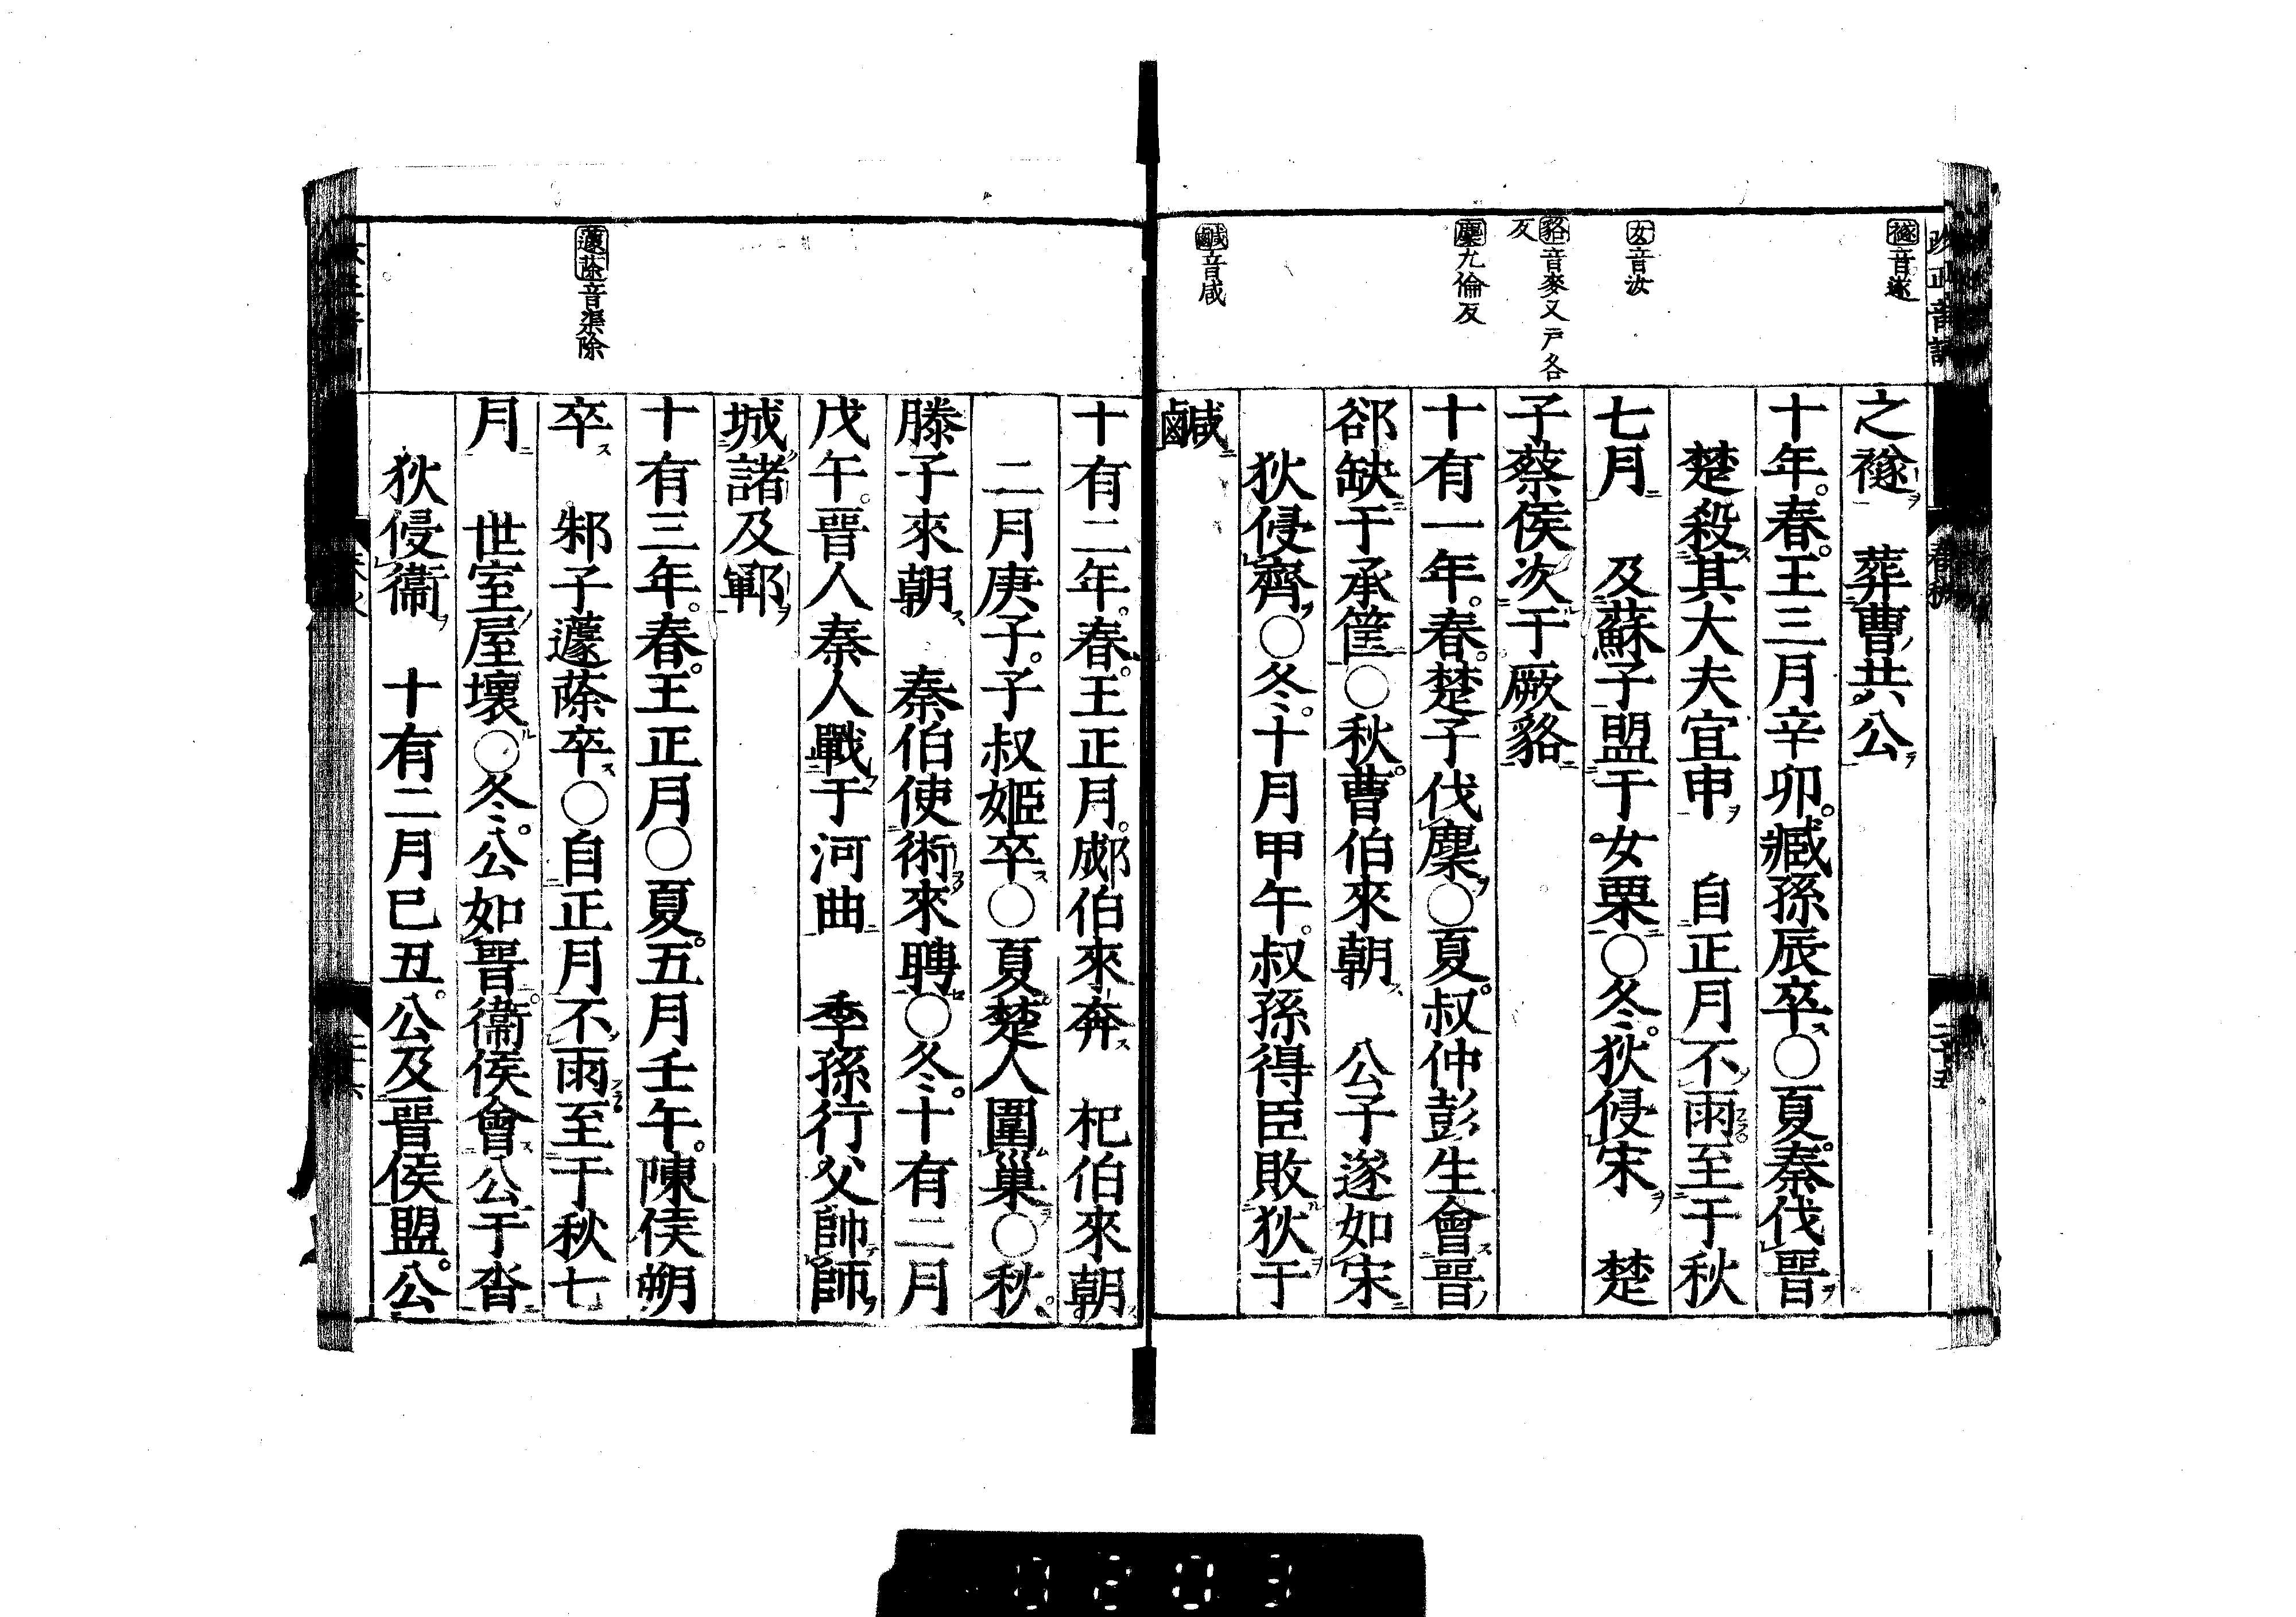 襚音遂
女音汝
貉音麥又戸各
反
麇九倫反
鹹音咸
之襚　葬曹共公
十年春王三月辛卯臧孫辰卒○夏秦伐晉
楚殺其大夫宜申　自正月不雨至于秋
七月　及蘇子盟于女栗○冬狄侵宋　楚
子蔡侯次于厥貉
十有一年春楚子伐麇○夏叔仲彭生會晉
郤缺于承筐○秋曹伯來朝　公子遂如宋
狄侵齊○冬十月甲午叔孫得臣敗狄于
鹹
蘧蒢音渠除
十有二年春王正月郕伯來奔　杞伯來朝
二月庚子子叔姬卒○夏楚人圍巢○秋
滕子來朝　秦伯使術來聘○冬十有二月
戊午晉人秦人戰于河曲　季孫行父帥師
城諸及鄆
十有三年春王正月○夏五月壬午陳侯朔
卒　邾子蘧蒢卒○自正月不雨至于秋七
月　世室屋壞○冬公如晉衞侯會公于沓
狄侵衞　十有二月己丑公及晉侯盟公
0203